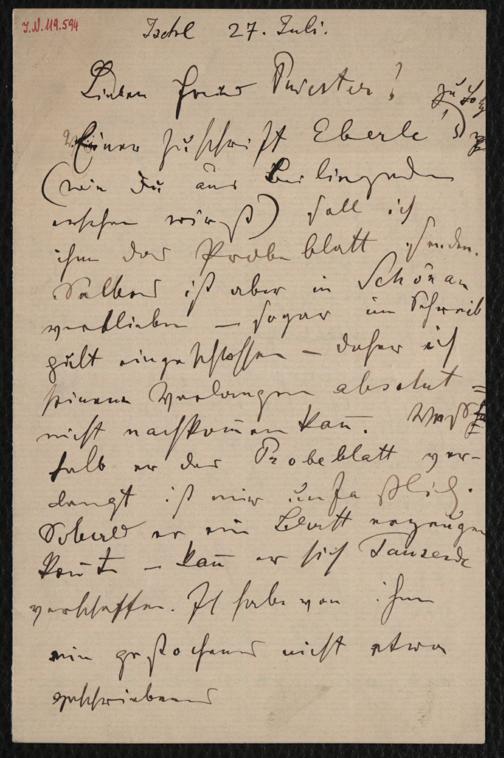 I.N. 119.594
Ischl 27. Juli.
Lieber Freund Purster!
Einer Zuschrift Eberle's zufolge
(wie Du aus Beiliegendem
ersehen wirst) soll ich
ihm das Probeblatt senden.
Selbes ist aber in Schönau
verblieben – sogar im Schreib
pult eingeschlossen – daher ich
seinem Verlangen absolut
nicht nachkom̄en kan̄. Weß=
halb er das Probeblatt ver-
langt ist mir unfaßlich.
Sobald er ein Blatt erzeugen
kon̄te – kan̄ er sich Tausende
verschaffen. Ich habe von ihm
ein gestochenes nicht etwa
geschriebenes